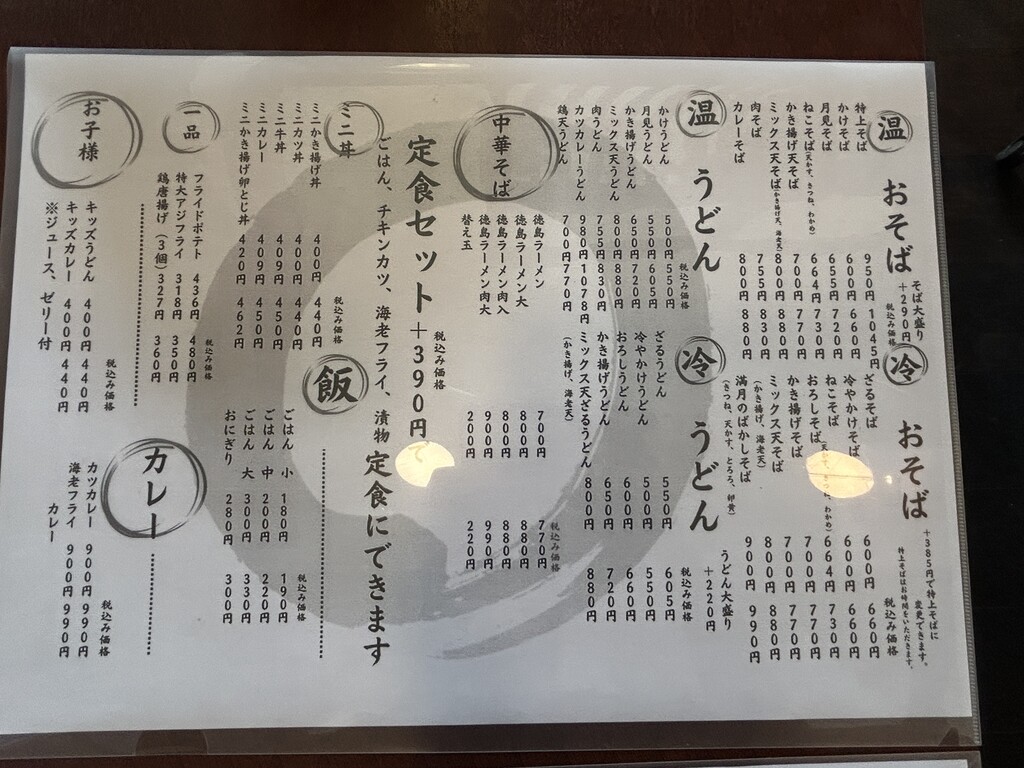 温 おそば
そば大盛り
+290円
税込み価格
特上そば 950円 1045円
かけそば 600円 660円
月見そば 650円 720円
ねこそば(天かす、きつね、わかめ) 664円 730円
かき揚げ天そば 700円 770円
ミックス天そば(かき揚げ天、海老天) 800円 880円
肉そば 755円 830円
カレーそば 800円 880円
冷 おそば
+385円で特上そばに
変更できます。
特上そばはお時間をいただきます。
税込み価格
ざるそば 600円 660円
冷やかけそば 600円 660円
ねこそば(天かす、きつね、わかめ) 664円 730円
おろしそば 700円 770円
かき揚げそば 700円 770円
ミックス天そば 800円 880円
(かき揚げ、海老天)
満月のばかしそば 900円 990円
(きつね、天かす、とろろ、卵黄)
温 うどん
税込み価格
かけうどん 500円 550円
月見うどん 550円 605円
かき揚げうどん 650円 720円
ミックス天うどん 800円 880円
肉うどん 755円 830円
カツカレーうどん 980円 1078円
鶏天うどん 700円 770円
冷 うどん
うどん大盛り
+220円
税込み価格
ざるうどん 550円 605円
冷やかけうどん 500円 550円
おろしうどん 600円 660円
かき揚げうどん 650円 720円
ミックス天ざるうどん 800円 880円
(かき揚げ、海老天)
中華そば
税込み価格
徳島ラーメン 700円 770円
徳島ラーメン大 800円 880円
徳島ラーメン肉入 800円 880円
徳島ラーメン肉大 900円 990円
替え玉 200円 220円
税込み価格
定食セット+390円で
ごはん、チキンカツ、海老フライ、漬物 定食にできます
ミニ丼
税込み価格
ミニかき揚げ丼 400円 440円
ミニカツ丼 400円 440円
ミニ牛丼 409円 450円
ミニカレー 409円 450円
ミニかき揚げ卵とじ丼 420円 462円
飯
税込み価格
ごはん 小 180円 190円
ごはん 中 200円 220円
ごはん 大 300円 330円
おにぎり 280円 300円
一品
税込み価格
フライドポテト 436円 480円
特大アジフライ 318円 350円
鶏唐揚げ(3個) 327円 360円
カレー
税込み価格
カツカレー 900円 990円
海老フライ 900円 990円
カレー
お子様
税込み価格
キッズうどん 400円 440円
キッズカレー 400円 440円
※ジュース、ゼリー付